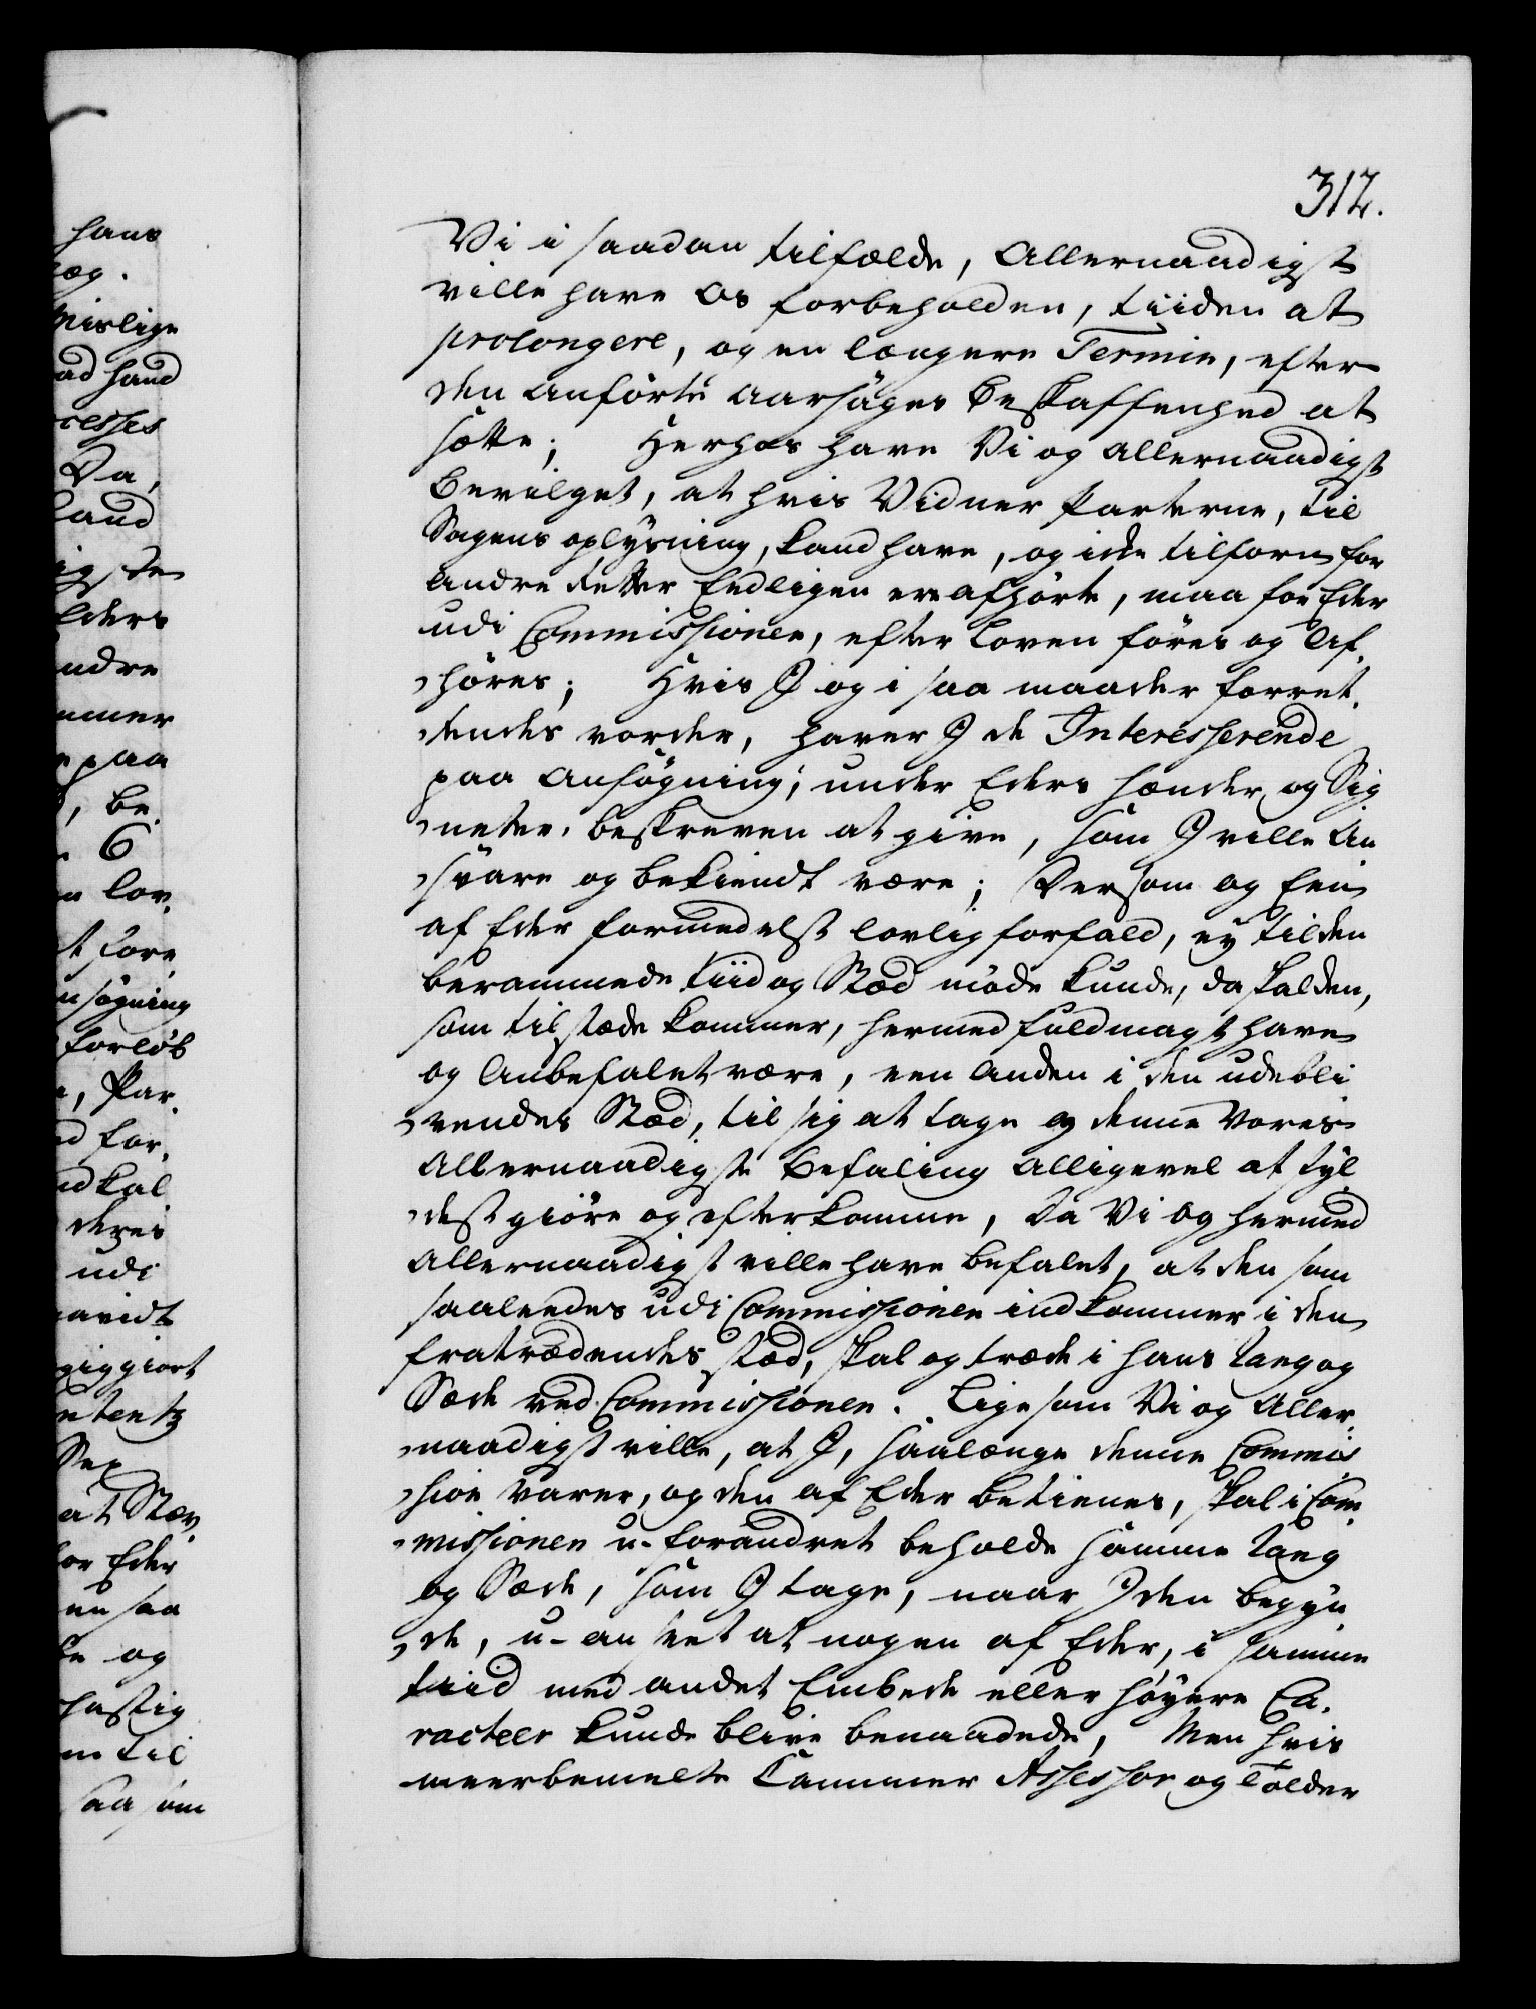 312.
hans
æg.
mislige
ad hand
cesses
Da,
hand
ig, de
lders
ndre
mmer
paa
, be
6
n lov.
t fore
nsøgning
forløb
, Par
d for
nd Kal
deres
udi
avidt
giggiort
ntentz
Sex
at Stæv
for Eder
en saa
te og
hastig
m til
saa som
Vi i saadan tilfælde, Allernaadigst
ville have Os forbeholden, tiiden at
prolongere, og en længere Termin, efter
den anførte aarsages Beskaffenhed at
sætte; Herhos have Vi og allernaadigst
bevilget, at hvis Vidner Parterne, til
Sagens oplysning, kand have, og icke tilforn for
andre Retter Endligen ere afhørte, maa for Eder
udi Commissionen, efter Loven føres og Af-
høres; Hvis I og i saa maader forret-
tendes vorder, haver I de Interesserende
paa Ansøgning, under Eders Hænder og Sig
neter, beskreven at give, som I ville An
svare og bekiendt være; Dersom og Een
af Eder formedelst lovlig forfald, ey til den
berammede tiid og Stæd møde kunde, da skal den,
som tilstæde kommer, hermed fuldmagt have
og Anbefalet være, een Anden i den udebli
vendes Stæd, til sig at tage og denne Vores
Allernaadigste Befaling alligevel at fyl
destgiøre og efterkomme, Da Vi og hermed
Allernaadigst ville have befalet, at den som
saaleedes udi Commissionen indkommer i den
fratrædendes stæd, skal og træde i hans Rang og
Sæde ved Commissionen. Ligesom Vi og Aller
naadigst ville, at I, saalænge denne Commis
sion varer, og den af Eder betienes, skal i Com
missionen u-forandret beholde samme Rang
og Sæde, som I tage, naar I den begyn
de, u-anseet at nogen af Eder, i samme
tiid med andet Embede eller høyere Ca-
racteer kunde blive benaadede, Men hvis
meerbemelte Cammer Assessor og Tolder